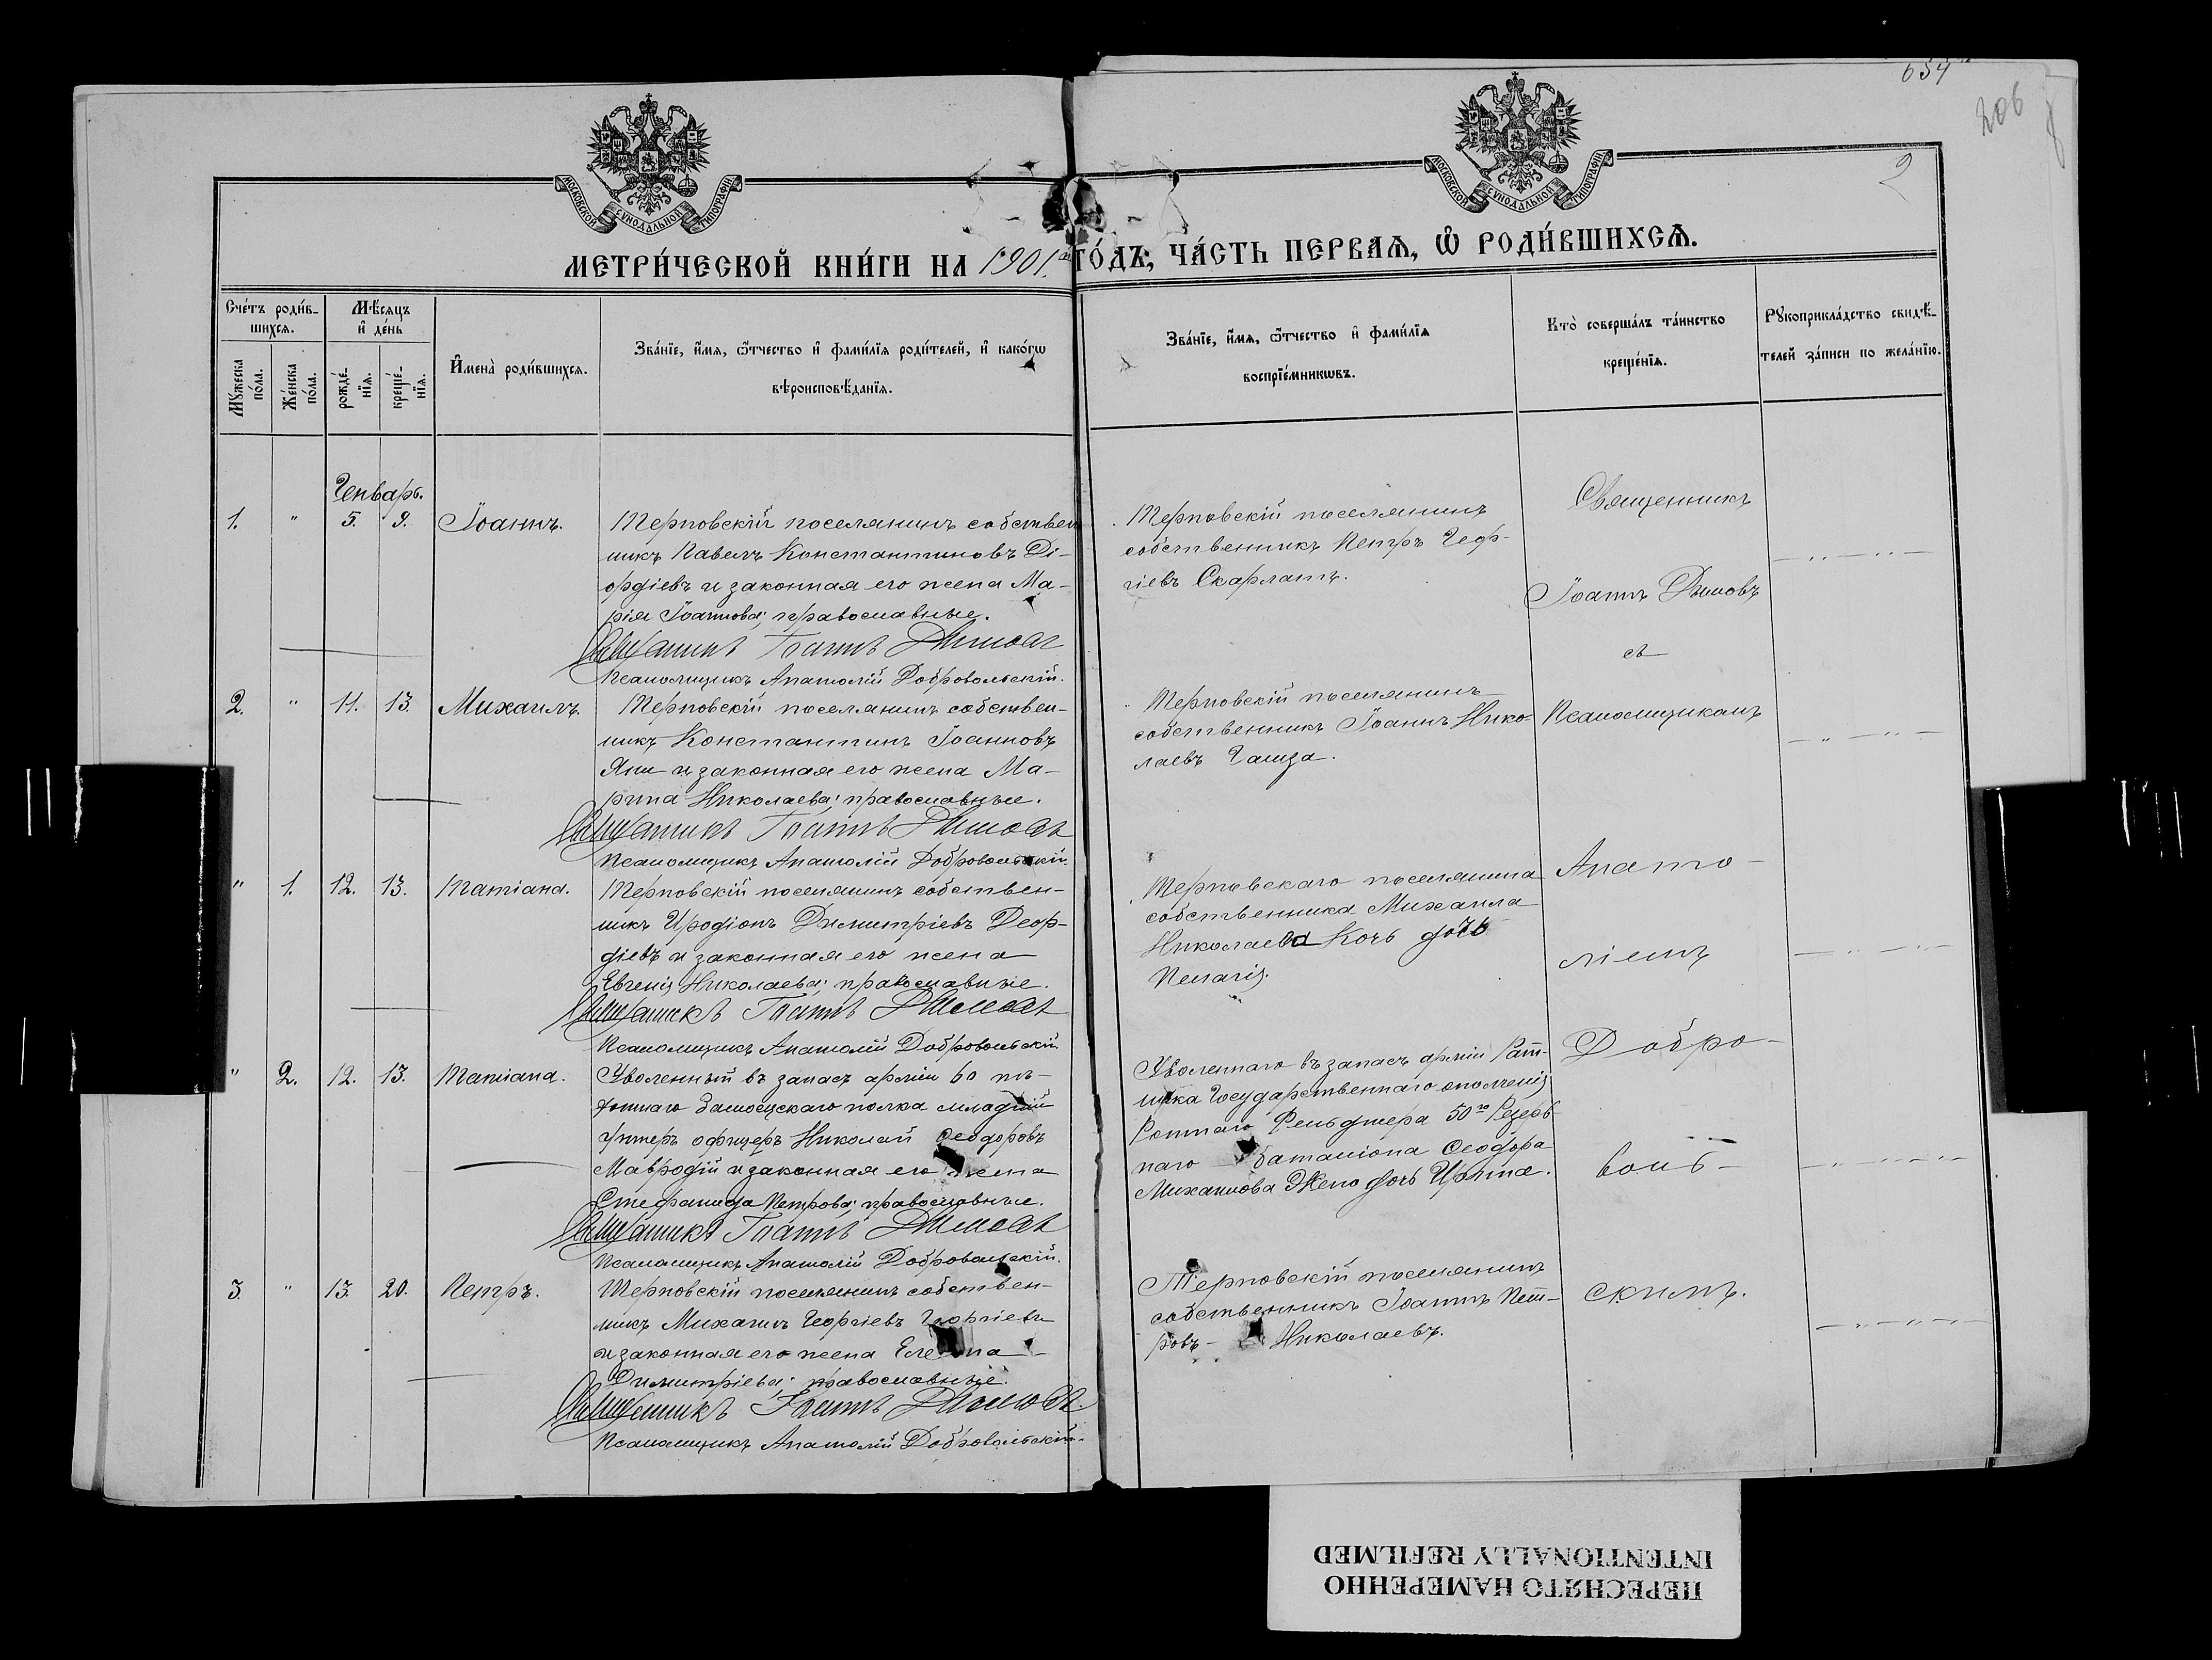 654
206
2
МОСКОВСКОЙ СУНОДАЛЬНОЙ ТИПОГРАФІИ
МОСКОВСКОЙ СУНОДАЛЬНОЙ ТИПОГРАФІИ
МЕТРИ́ЧЕСКОЙ КНИ́ГИ НА 1901 ГО́ДЪ, ЧА́СТЬ ПЕРВАѦ, Ѡ҆ РОДИ́ВШИХСѦ.
Сче́тъ роди́в-
шихсѧ.
Мꙋ́жеска по́ла.
Же́нска по́ла.
Мѣ́сѧцъ
и҆ де́нь
рожде́-нїѧ.
креще́-нїѧ.
И҆мена̀ роди́вшихсѧ.
Зва́нїе, и҆́мѧ, ѻ҆́тчество и҆ фами́лїѧ роди́телей, и҆ како́гѡ
вѣроисповѣ́данїѧ.
Зва́нїе, и҆́мѧ, ѻ҆́тчество и҆ фами́лїѧ
воспрїе́мникѡвъ.
Кто̀ соверша́лъ та́инство
креще́нїѧ.
Рꙋкоприкла́дство свидѣ́-
телей за́писи по жела́нїю.
Генварь.
1. " 5. 9. Іоаннъ.
Терновскій поселянинъ собствен
никъ Павелъ Константиновъ Ді-
ордіевъ и законная его жена Ма-
рія Іоаннова; православные.
Священникъ Іоаннъ Димовъ
Псаломщикъ Анатолій Добровольскій.
Терновскій поселянинъ
собственникъ Петръ Геор-
гіевъ Скарлатъ.
Священникъ
Іоаннъ Димовъ
съ
2. " 11. 13. Михаилъ.
Терновскій поселянинъ собствен-
никъ Константинъ Іоанновъ
Яни и законная его жена Ма-
рина Николаева; православные.
Священникъ Іоаннъ Димовъ
Псаломщикъ Анатолій Добровольскій.
Терновскій поселянинъ
собственникъ Іоаннъ Нико-
лаевъ
Псаломщикомъ
" 1. 12. 13. Татіана.
Терновскій поселянинъ собствен-
никъ Иродіонъ Димитріевъ Деор-
діевъ и законная его жена
Евгенія Николаева; православные.
Священникъ Іоаннъ Димовъ
Псаломщикъ Анатолій Добровольскій.
Терновскаго поселянина
собственника Михаила
Николаева Кочь дочь
Пелагія.
Анато-
ліемъ
" 2. 12. 13. Татіана.
Уволенный въ запасъ арміи 60 пѣ-
хотнаго Замосцскаго полка младшій
унтеръ офицеръ Николай Ѳеодоровъ
Мавродій и законная его жена
Стефанида Петрова; православные.
Священникъ Іоаннъ Димовъ
Псаломщикъ Анатолій Добровольскій.
Уволеннаго въ запасъ арміи Рат-
ника Государственнаго ополченія
Ротнаго Фельдшера 50го Резерв-
наго баталіона Ѳеодора
Михаилова дочь Ирина.
Добро-
воль-
3. " 13. 20. Петръ.
Терновскій поселянинъ собствен-
никъ Михаилъ Георгіевъ Георгіевъ
и законная его жена Елена
Димитріева; православные.
Священникъ Іоаннъ Димовъ.
Псаломщикъ Анатолій Добровольскій.
Терновскій поселянинъ
собственникъ Іоаннъ Пет-
ровъ - Николаевъ.
скимъ.
INTENTIONALLY REFILMED
ПЕРЕСНЯТО НАМЕРЕННО